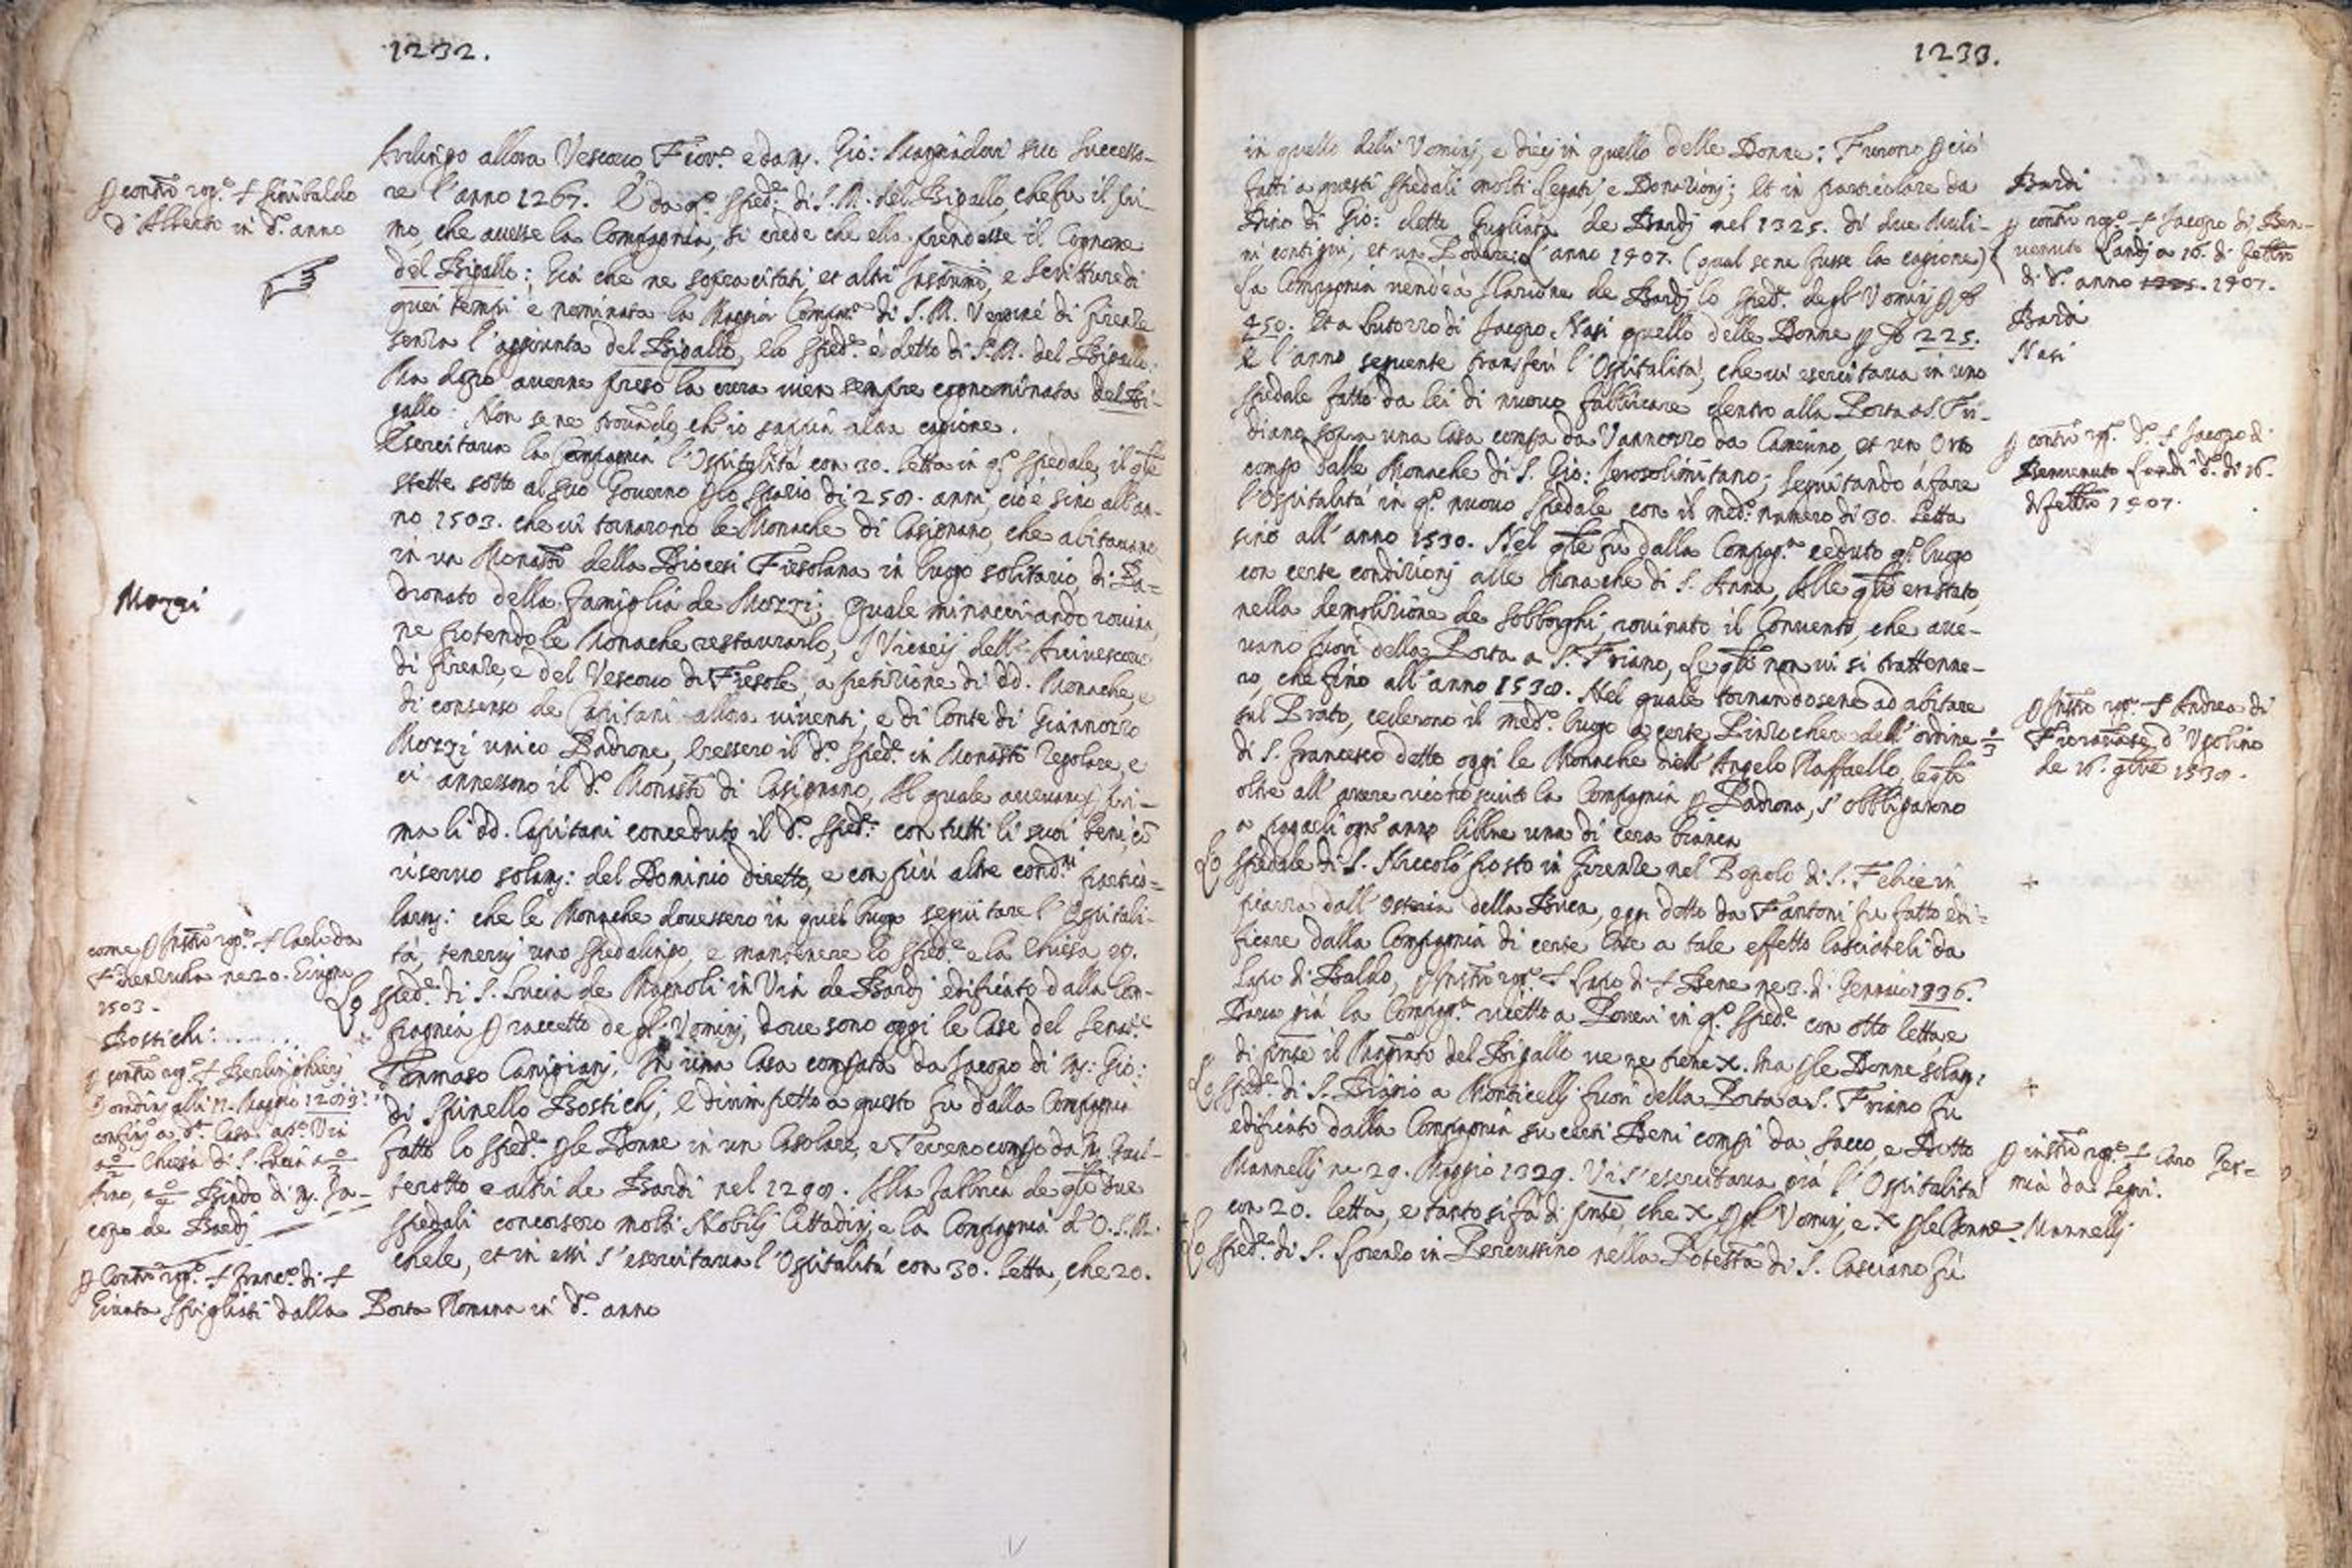 1232.
Ardingo allora Vescovo Fior.º e da mj. Gio: Mangiadori suo Successo-
re l'anno 1267. E da q.º Sped.e di S. M. del Bigallo, che fu il pri-
mo, che avesse la Compagnia, si crede che ella prendesse il Cognome
del Bigallo: Già che ne sopracitati, et altri Instrumi, e Scritture di
quei tempi è nominata la Maggiór Compag.a di S. M. Vergine di Firenze
senza l'aggiunta del Bigallo, e lo Sped.e è detto di S. M. del Bigallo.
Ma dopo averne preso la cura vien sempre cognominata del Bi-
gallo: Non se ne trovando, ch'io sappia altra cagione.
Esercitava la Compagnia l'Ospitalità con 30. letta in q.º Spedale, il qle
stette sotto al suo Governo p lo spazio di 258. anni, cioè sino all'an-
no 1503. che vi tornarono le Monache di Casignano, che abitavano
in un Monastº della Diocesi Fiesolana in luogo solitario, di Pa-
dronato della Famiglia de Mozzi; quale minacciando rovina,
ne potendo le Monache restaurarlo, I Vicarij dell'Arcivescovo
di Firenze, e del Vescovo di Fiesole, a petizione di dd. Monache, e
di consenso de Capitani allora viventi, e di Conte di Giannozzo
Mozzi unico Padrone, eressero il d.º Sped.e in Monastº Regolare, e
ci annessono il d.º Monastº di Casignano, Al quale avevano pri-
ma li dd. Capitani conceduto il d.º Sped.e con tutti li suoi beni, cō
riservo solamj: del Dominio diretto, e con più altre cond.ni partico-
larmj: che le Monache dovessero in quel luogo seguitare l'Ospitali-
tà, tenervj uno Spedalingo, e mantenere lo Sped.e e la Chiesa
Lo Sped.e di S. Lucia de Magnoli in Via de Bardj edificato dalla Com-
pagnia p raccetto de gl'Vominj, dove sono oggi le Case del Senat.e
Tommaso Canigianj, In una Casa comprata da Jacopo di mj: Gio:
di Spinello Bostichj, E dirimpetto a questo fu dalla Compagnia
fatto lo Sped.e p le Donne in un Casolare, e Terreno compro da mj.
terotto e altri de Bardi nel 1298. Alla fabbrica de qli due
Spedali concorsero molti Nobilj Cittadinj, e la Compagnia d'O. S. M.
chele, et in essi s'esercitava l'Ospitalità con 30. letta, che 20.
p contrº rogº f Sinibaldo
d'Alberto in d.º anno
Mozzi
come p Instrº rogº f Carlo da
Firenzuola ne 20. Giugno
1503.
Bostichi: . . . . . .
p contrº rog.º f Berlinghierj
alli 11. Maggio
confinj a p.º Via
Chiesa di S. Lucia a
Arno, a Bindo di mj. Ja-
copo de Bardj
p Contrº rogº f Franc.º di f
Giunta Spigliati dalla Porta Romana in d.º anno
1233.
in quello delli Vominj, e diecj in quello delle Donne: Furono p ciò
fatti a questi Spedali molti Legati, e Donazionj; Et in particolare da
Dino di Gio: detto Gugliata de Bardj nel 1325. di due Muli-
ni contigui, et un Podere: L'anno 1407. (qual se ne fusse la cagione)
La Compagnia vendè à Ilarione de Bardj lo Sped.e degl'Vominj p
450. Et a Lutozzo di Jacopo Nasi quello delle Donne p 225.
E l'anno seguente transferì l'Ospitalità, che vi esercitava in uno
Spedale fatto da lei di nuovo fabbricare dentro alla Porta a S. Fri-
diano sopra una Casa compra da Vannozzo da Camerino, et un Orto
compro dalle Monache di S. Gio: Ierosolimitano; seguitando à fare
l'Ospitalità in q.º nuovo Spedale con il med.º numero di 30. Letta
sino all'anno 1530. Nel qle fu dalla Compag.a ceduto q.º luogo
con certe condizionj alle Monache di S. Anna, Alle qli era stato,
nella demolizione de Sobborghi, rovinato il Convento, che ave-
vano fuori della Porta a S. Friano, Le qli non vi si trattenne-
ro, che fino all'anno 1538. Nel quale tornandosene ad abitare
sul Prato, cederono il med.º luogo a certe Pinzochere dell'ordine 3º
di S. Francesco dette oggi le Monache dell'Angelo Raffaello, le qli
oltre all'avere riconosciuto la Compagnia p Padrona, s'obbligarono
a pagarli ogn'anno libbre una di cera bianca
Lo Spedale di S. Niccolò posto in Firenze nel Popolo di S. Felice in
piazza dall'Osteria della Buca, oggi detto da Fantoni fu fatto edi-
ficare dalla Compagnia di certe Case a tale effetto lasciateli da
Lapo di Baldo, p Instrº rogº f Lapo di f Bene ne 3. di Gennaio 1336.
Dava già la Compag.a ricetto a Poveri in q.º Sped.e con otto letta, e
di pnte il Magistrato del Bigallo ve ne tiene X. ma p le Donne solamj
Lo Sped.e di S. Biagio a Monticellj fuori della Porta a S. Friano fu
edificato dalla Compagnia su certi Beni compri da Sacco, e Dotto
Mannellj ne 29. Maggio 1329. Vi s'esercitava già l'Ospitalità
con 20. letta, e tanto si fà di pnte che X p gl'Vominj, e X p le Donne.
Lo Sped.e di S. Lorenzo in Percussino nella Potestª di S. Casciano fù
Bardi
p contrº rogº f Jacopo di Ben-
venuto Landj a 16. di Febbrº
di d.º anno 1325. 1407.
Bardi
Nasi
p contrº rogº d.º f Jacopo di
Benvenuto Landi d.º di 16.
di Febbrº 1407.
p Instrº rogº f Andrea di
d'Ugolino
de 16. 9bre 1538.
p instrº rogº f Cino Gere-
mia da Signi.
Mannellj